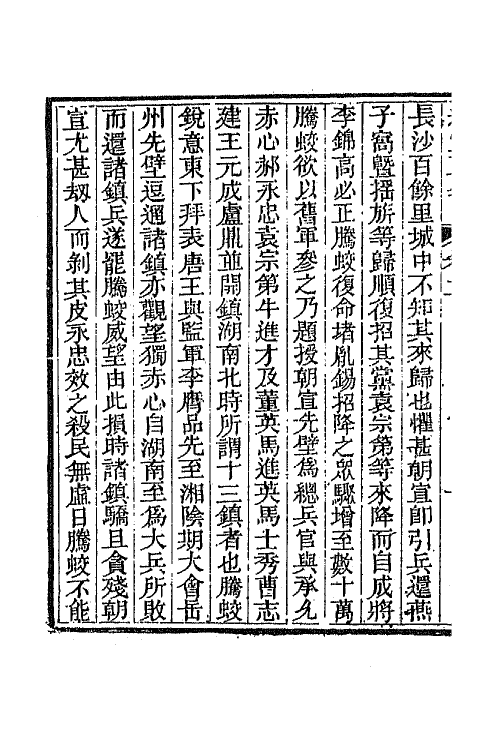 長沙百餘里城中不知其來歸也懼甚朝宣卽引兵還燕
子窩曁搖旂等歸順復招其黨袁宗第等來降而自成將
李錦高必正騰蛟復命堵胤錫招降之眾驟增至數十萬
騰蛟欲以舊軍參之乃題授朝宣先壁爲總兵官與承允
赤心郝永忠袁宗第牛進才及董英馬進英馬士秀曹志
建王元成盧鼎並開鎮湖南北時所謂十三鎮者也騰蛟
銳意東下拜表唐王與監軍李膺品先至湘陰期大會岳
州先壁逗遛諸鎮亦觀望獨赤心自湖南至爲大兵所敗
而還諸鎮兵遂罷騰蛟威望由此損時諸鎮驕且貪殘朝
宣尤甚劫人而剝其皮永忠效之殺民無虛日騰蛟不能